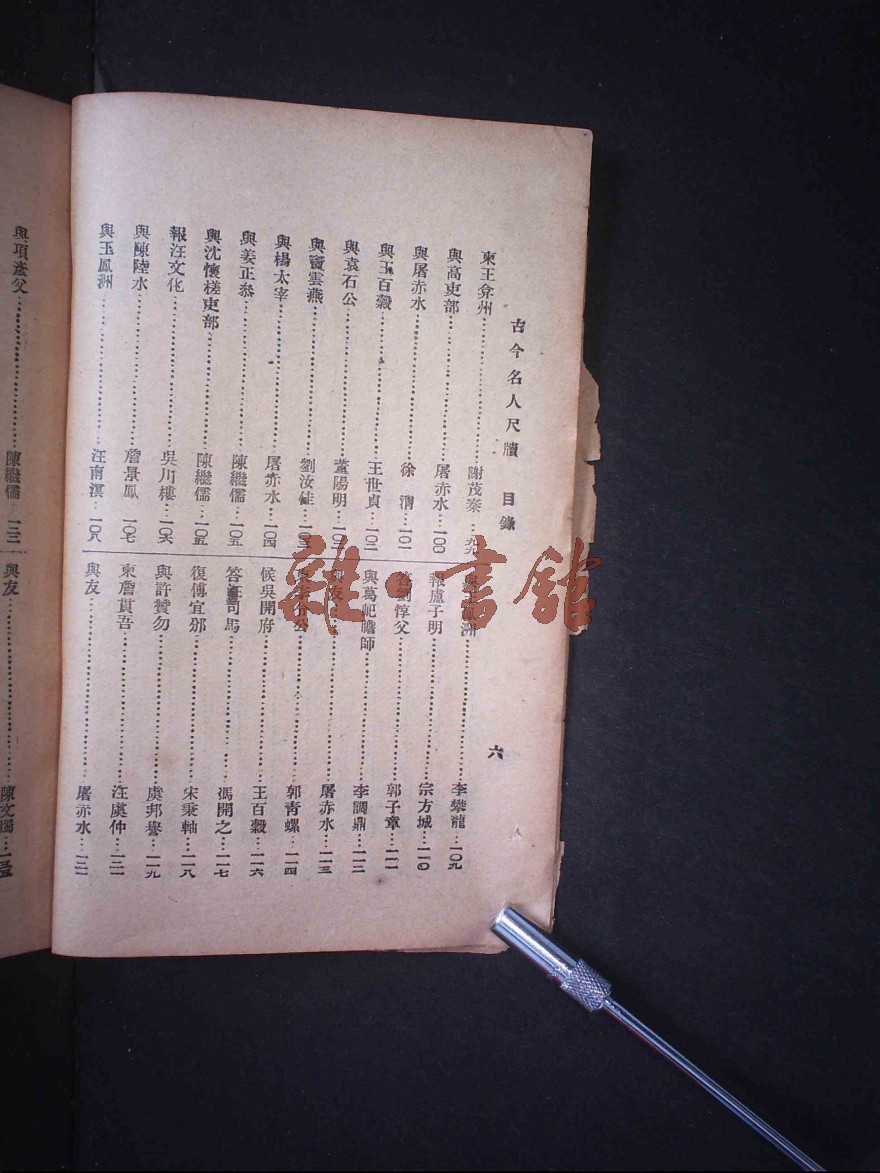 古今名人尺牘 目錄
六
柬王弇州……謝茂秦…九九
與高吏部……屠赤水…一〇〇
與屠赤水……徐 渭…一〇一
與王百穀……王世貞…一〇二
與袁石公……董陽明…一〇
與竇雲燕……劉汝佳…一〇三
與楊太宰……屠赤水…一〇四
與姜正叅……陳繼儒…一〇五
與沈懷槎吏部……陳繼儒…一〇五
報汪文化……吳川樓…一〇六
與陳陸水……詹景鳳 一〇七
與玉鳳洲……汪南溟…一〇八
鳳洲……李攀龍…一〇九
報盧子明……宗方城…一一〇
答劉惇父……郭子章…一一一
與葛屺瞻師……李調鼎…一一二
與友……屠赤水…一一三
公……郭青螺…一一四
候吳開府……王百穀…一一六
答汪司馬……馮開之…一一七
復傅宜邠……宋秉軸…一一八
與許贊勿……虞邦譽…一一九
柬詹貫吾……汪虞仲…一二一
與友……屠赤水…一二一
與項彥父……陳繼儒 一二二
與友……陳文燭…一
雜·書館